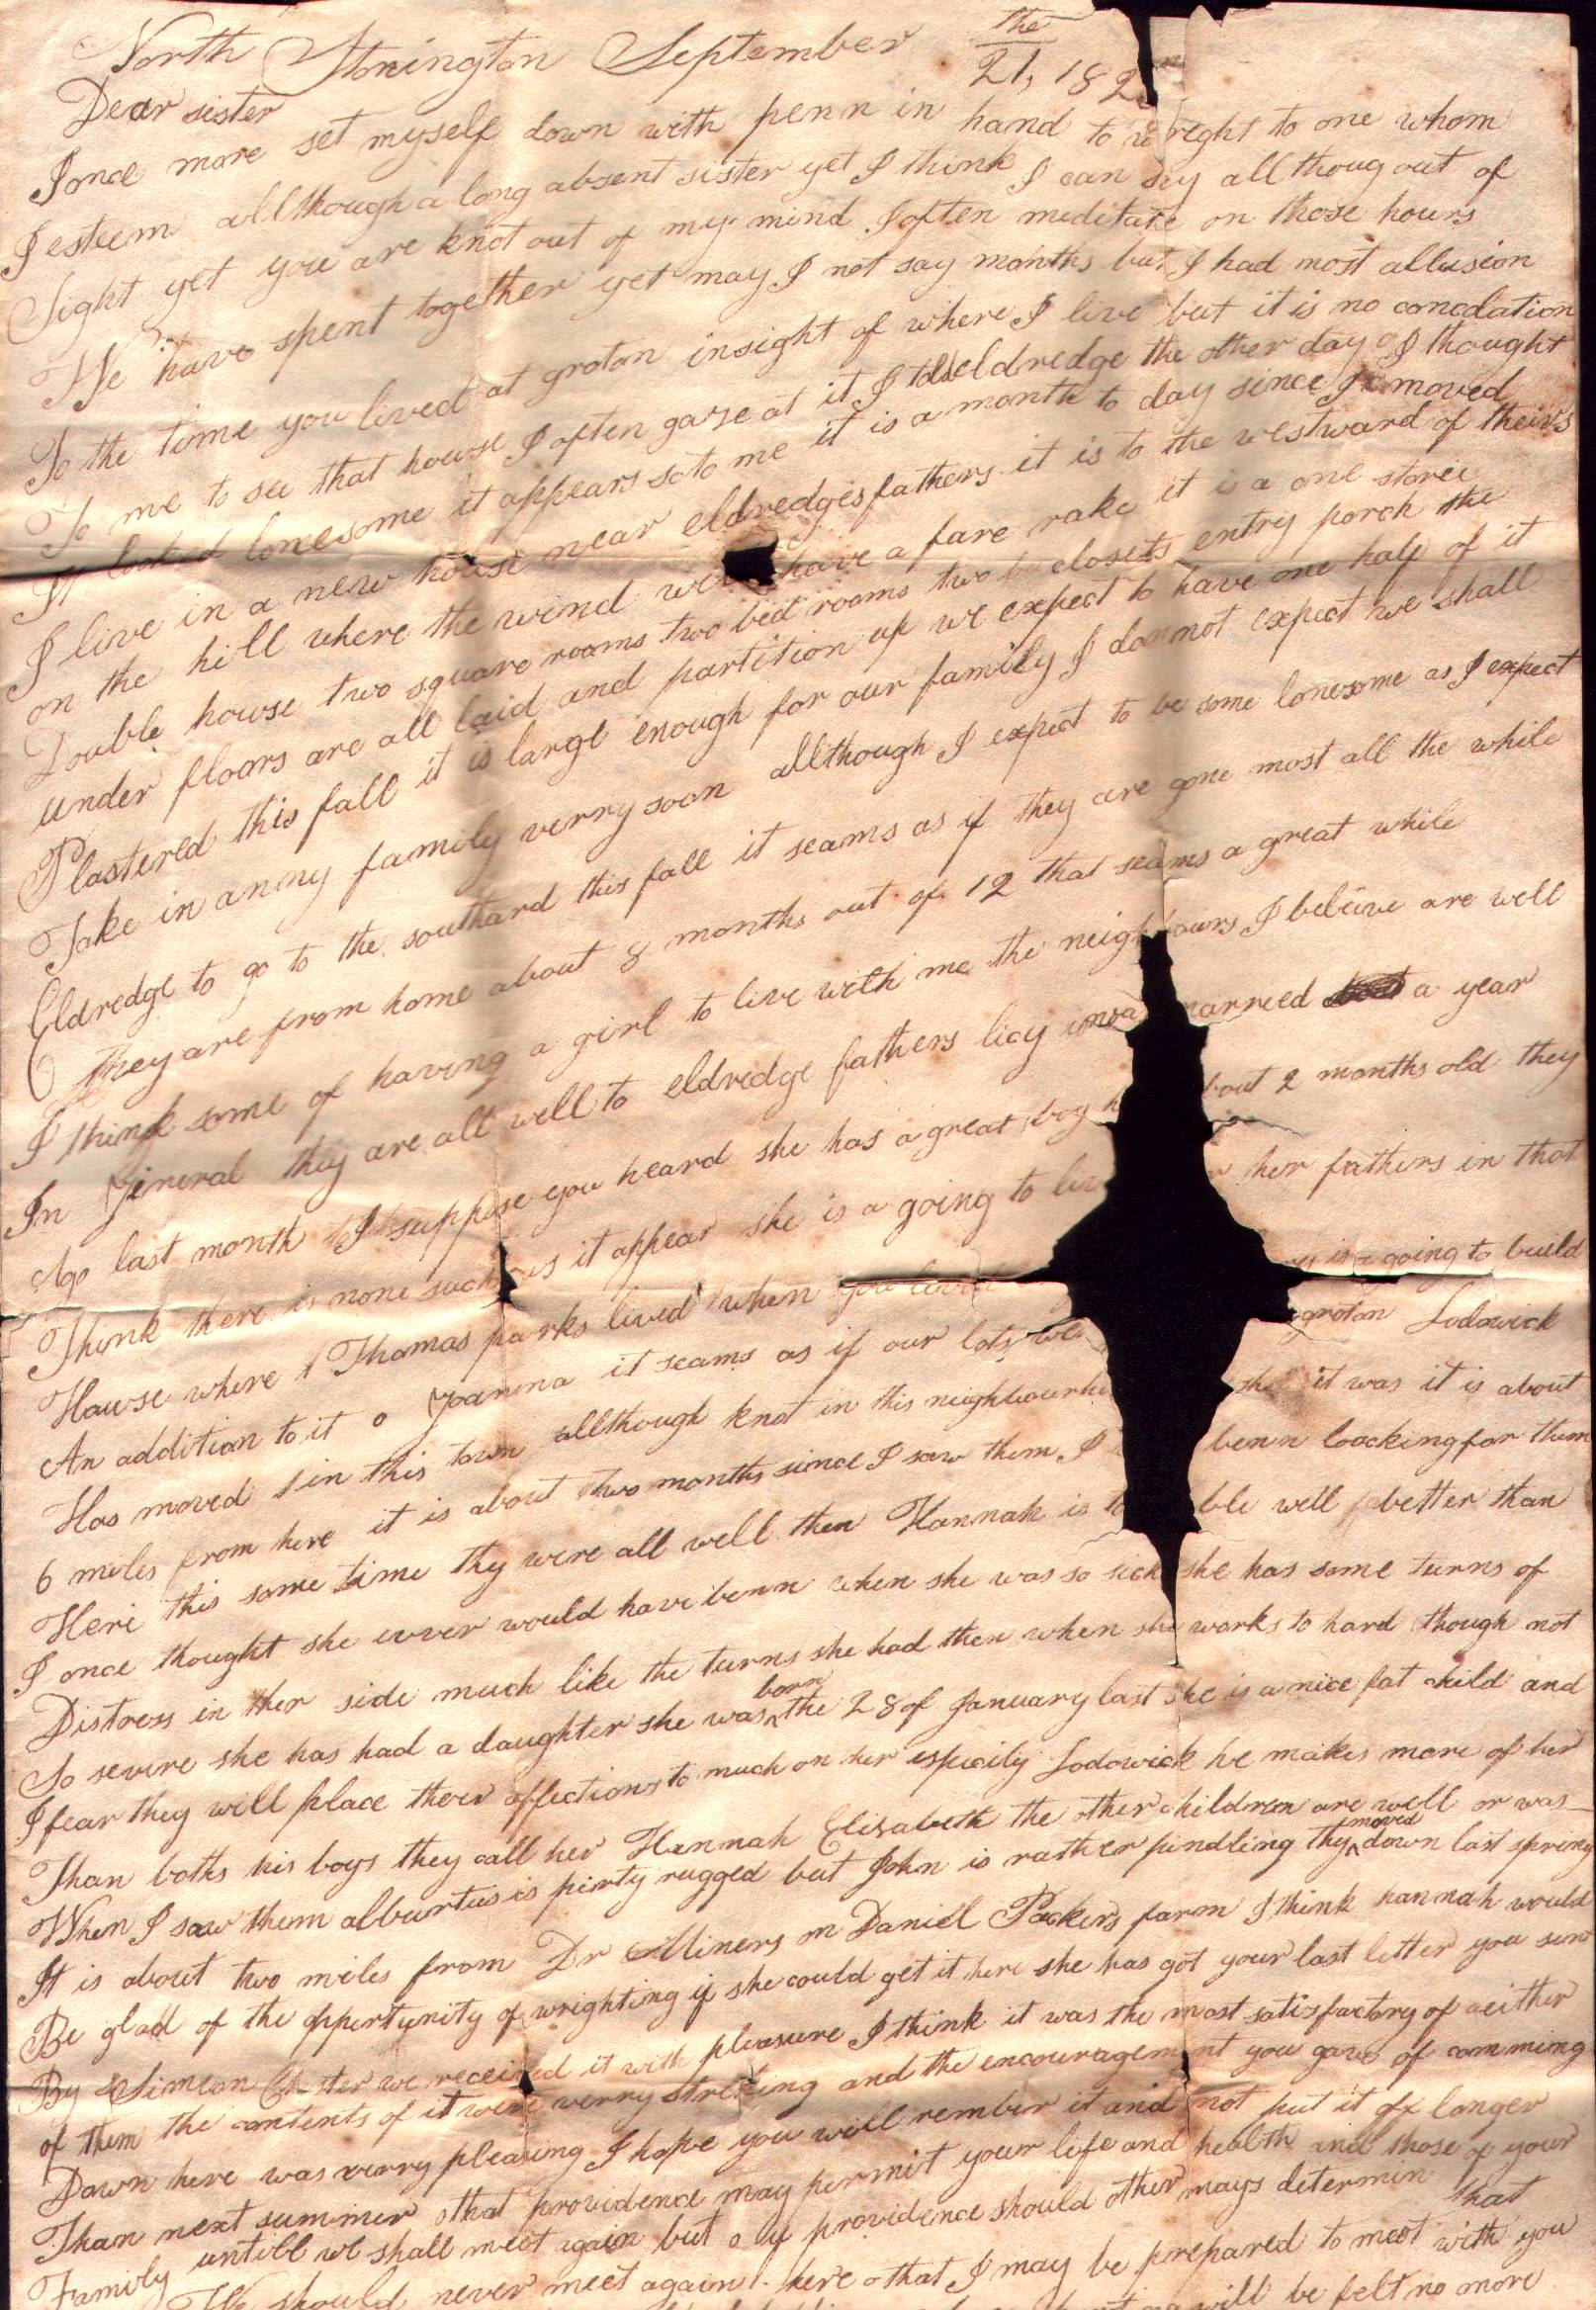 North Stonington September the 21, 182
Dear sister
I once more set myself down with penn in hand to wreight to one whom
I esteem allthough a long absent sister yet I think I can say allthoug out of
Sight yet you are knot out of my mind I often meditate on those hours
We have spent together yet may I not say months but I had most allusion
To the time you lived at groton insight of where I live but it is no comodation
To me to see that house I often gaze at it I told eldredge the other day I thought
It looked lonesome it appears so to me it is a month to day since I moved
I live in a new house near eldredges fathers it is to the westward of theirs
on the hill where the wind will have a fare rake it is a one storie
Double house two square rooms two bed rooms two closets entry porch the
under floors are all laid and partition up we expect to have one half of it
Plastered this fall it is large enough for our family I do not expect we shall
Take in anny family verry soon allthough I expect to be some lonesome as I expect
Eldredge to go to the southard this fall it seams as if they are gone most all the while
They are from home about 8 months out of 12 that seams a great while
I think some of having a girl to live with me the neighbours I beleive are well
In jineral they are all well to eldredge fathers licy was married a year
Ago last month I suppose you heard she has a great boy about 2 months old they
Think there is none such as it appear she is a going to live her fathers in that
House where Thomas parks lived when you lived is a going to build
An addition to it o Joanna it seams as if our lots groton Lodowick
Has moved in this town allthough knot in this neighbourho it was it is about
6 miles from here it is about two months since I saw them I benn loocking for them
Here this some time thy were all well then Hannah is tolable well better than
I once thought she ever would have benn when she was so sick she has some turns of
Distress in her side much like the turns she had then when she works to hard though not
So severe she has had a daughter she was born the 28 of January last she is a nice fat child and
I fear they will place their affections to much on her espicily Lodowick he makes more of her
Than boths his boys they call her Hannah Elisabeth the other children are well or was
When I saw them alburtus is pirty rugged but John is rather pindling thy moved down last spring
It is about two miles from Dr Miners on Daniel Packers farm I think hannah would
Be glad of the oppertunity of wrighting if she could get it here she has got your last letter you sent
By Simeon Chester we received it with pleasure I think it was the most satisfactory of neither
of them the contents of it were verry streking and the encouragement you gave of comming
Down here was verry pleasing I hope you will rember it and not put it off longer
Than next summer o that providence may permit your life and health and those of your
Family untill we shall meet again but o if providence should other ways determin that
We should never meet again here o that I may be prepared to meet with you
will be felt no more